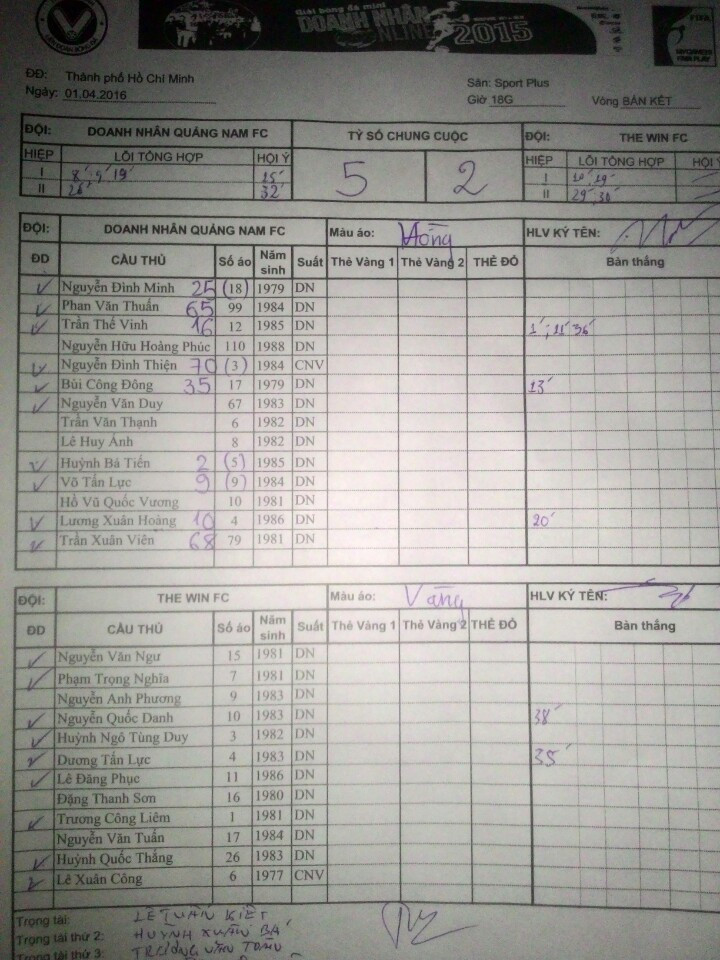 LIÊN ĐOÀN BÓNG ĐÁ
Giải bóng đá mini
DOANH NHÂN
NLINE 2015
FIFA
MY GAME IS FAIR PLAY
ĐĐ: Thành phố Hồ Chí Minh
Ngày: 01.04.2016
Sân: Sport Plus
Giờ 18G Vòng BÁN KẾT
ĐỘI: DOANH NHÂN QUẢNG NAM FC TỶ SỐ CHUNG CUỘC ĐỘI: THE WIN FC
HIỆP LỖI TỔNG HỢP HỘI Ý 5 2 HIỆP LỖI TỔNG HỢP HỘI Ý
I 8' 9' 19' 15' I 10' 19'
II 26' 32' II 29' 30'
ĐỘI: DOANH NHÂN QUẢNG NAM FC Màu áo: Hồng HLV KÝ TÊN:
ĐD CẦU THỦ Số áo Năm sinh Suất Thẻ Vàng 1 Thẻ Vàng 2 THẺ ĐỎ Bàn thắng
✓ Nguyễn Đình Minh 25 (18) 1979 DN
✓ Phan Văn Thuấn 65 99 1984 DN
✓ Trần Thế Vinh 16 12 1985 DN 1' ; 11' 36'
Nguyễn Hữu Hoàng Phúc 110 1988 DN
✓ Nguyễn Đình Thiện 70 (3) 1984 CNV
✓ Bùi Công Đông 35 17 1979 DN 13'
✓ Nguyễn Văn Duy 67 1983 DN
Trần Văn Thạnh 6 1982 DN
Lê Huy Ánh 8 1982 DN
✓ Huỳnh Bá Tiến 2 (5) 1985 DN
✓ Võ Tấn Lực 9 (9) 1984 DN
Hồ Vũ Quốc Vương 10 1981 DN
✓ Lương Xuân Hoàng 10 4 1986 DN 20'
✓ Trần Xuân Viên 68 79 1981 DN
ĐỘI: THE WIN FC Màu áo: Vàng HLV KÝ TÊN:
ĐD CẦU THỦ Số áo Năm sinh Suất Thẻ Vàng 1 Thẻ Vàng 2 THẺ ĐỎ Bàn thắng
✓ Nguyễn Văn Ngư 15 1981 DN
✓ Phạm Trọng Nghĩa 7 1981 DN
Nguyễn Anh Phương 9 1983 DN
✓ Nguyễn Quốc Danh 10 1983 DN 38'
✓ Huỳnh Ngô Tùng Duy 3 1982 DN
✓ Dương Tấn Lực 4 1983 DN 35'
✓ Lê Đăng Phục 11 1986 DN
Đặng Thanh Sơn 16 1980 DN
✓ Trương Công Liêm 1 1981 DN
Nguyễn Văn Tuấn 17 1984 DN
✓ Huỳnh Quốc Thắng 26 1983 DN
✓ Lê Xuân Công 6 1977 CNV
Trọng tài: LÊ TUẤN KIỆT
Trọng tài thứ 2: HUỲNH XUÂN BÁ
Trọng tài thứ 3: TRƯƠNG VĂN TOẢN